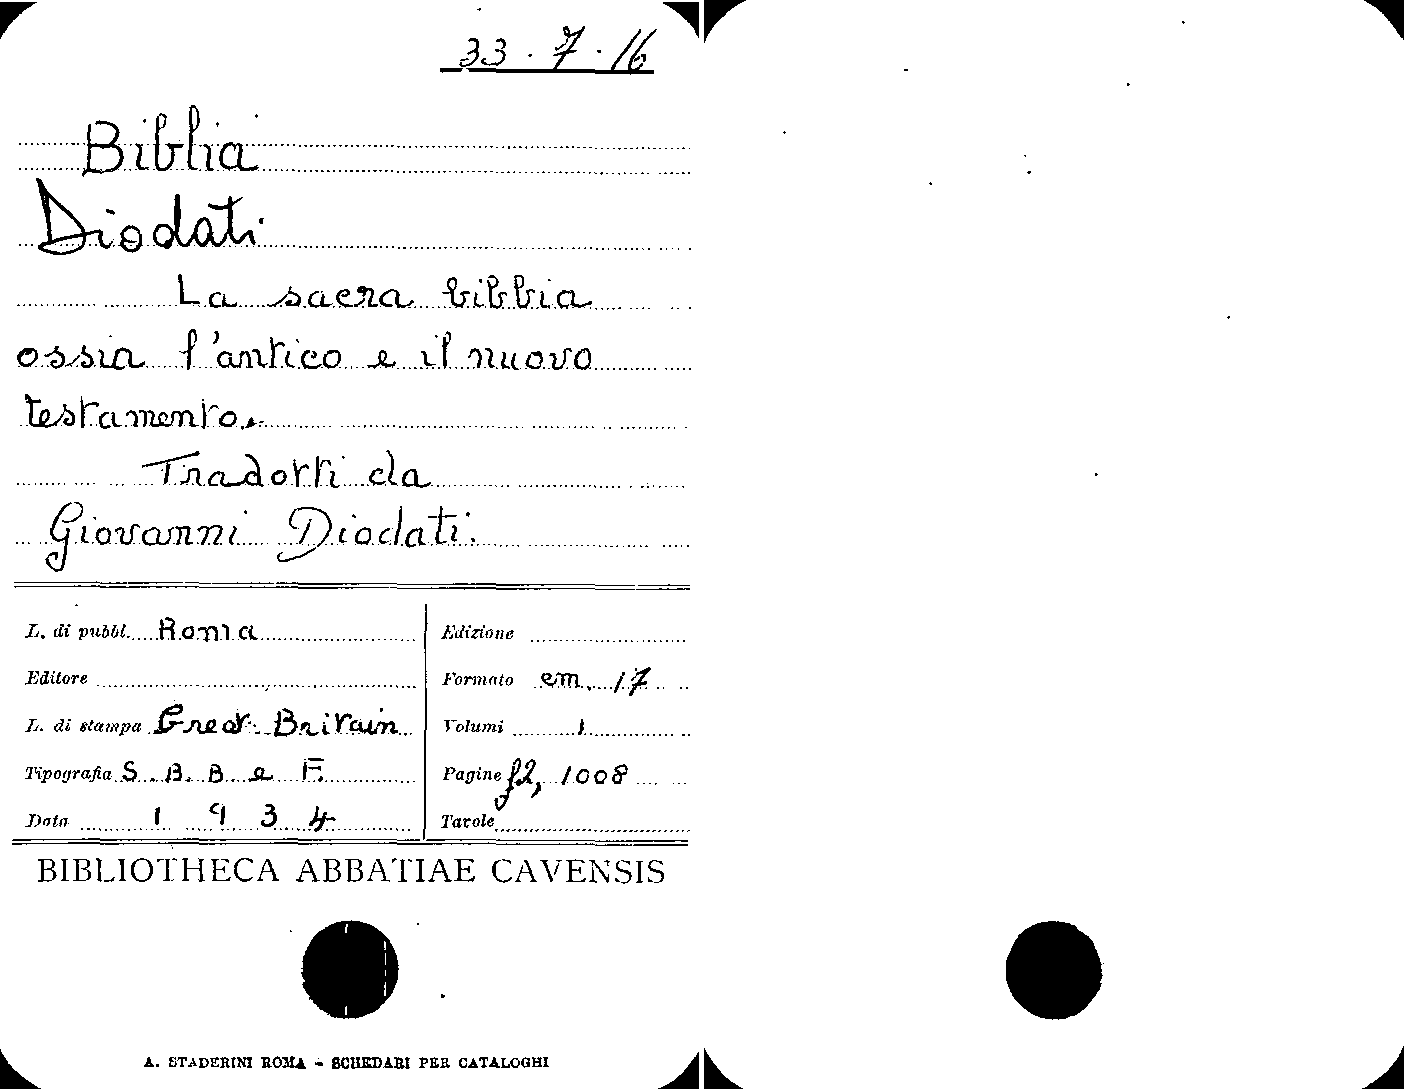 33 . 7 . 16
Biblia
Diodati
La sacra bibbia
ossia l'antico e il nuovo
testamento.
Tradotti da
Giovanni Diodati.
L. di pubbl. Roma
Editore
L. di stampa Great Britain
Tipografia S. B. B e F.
Data 1934
Edizione
Formato cm. 17
Volumi 1
Pagine f2, 1008
Tavole
BIBLIOTHECA ABBATIAE CAVENSIS
A. STADERINI ROMA - SCHEDARI PER CATALOGHI